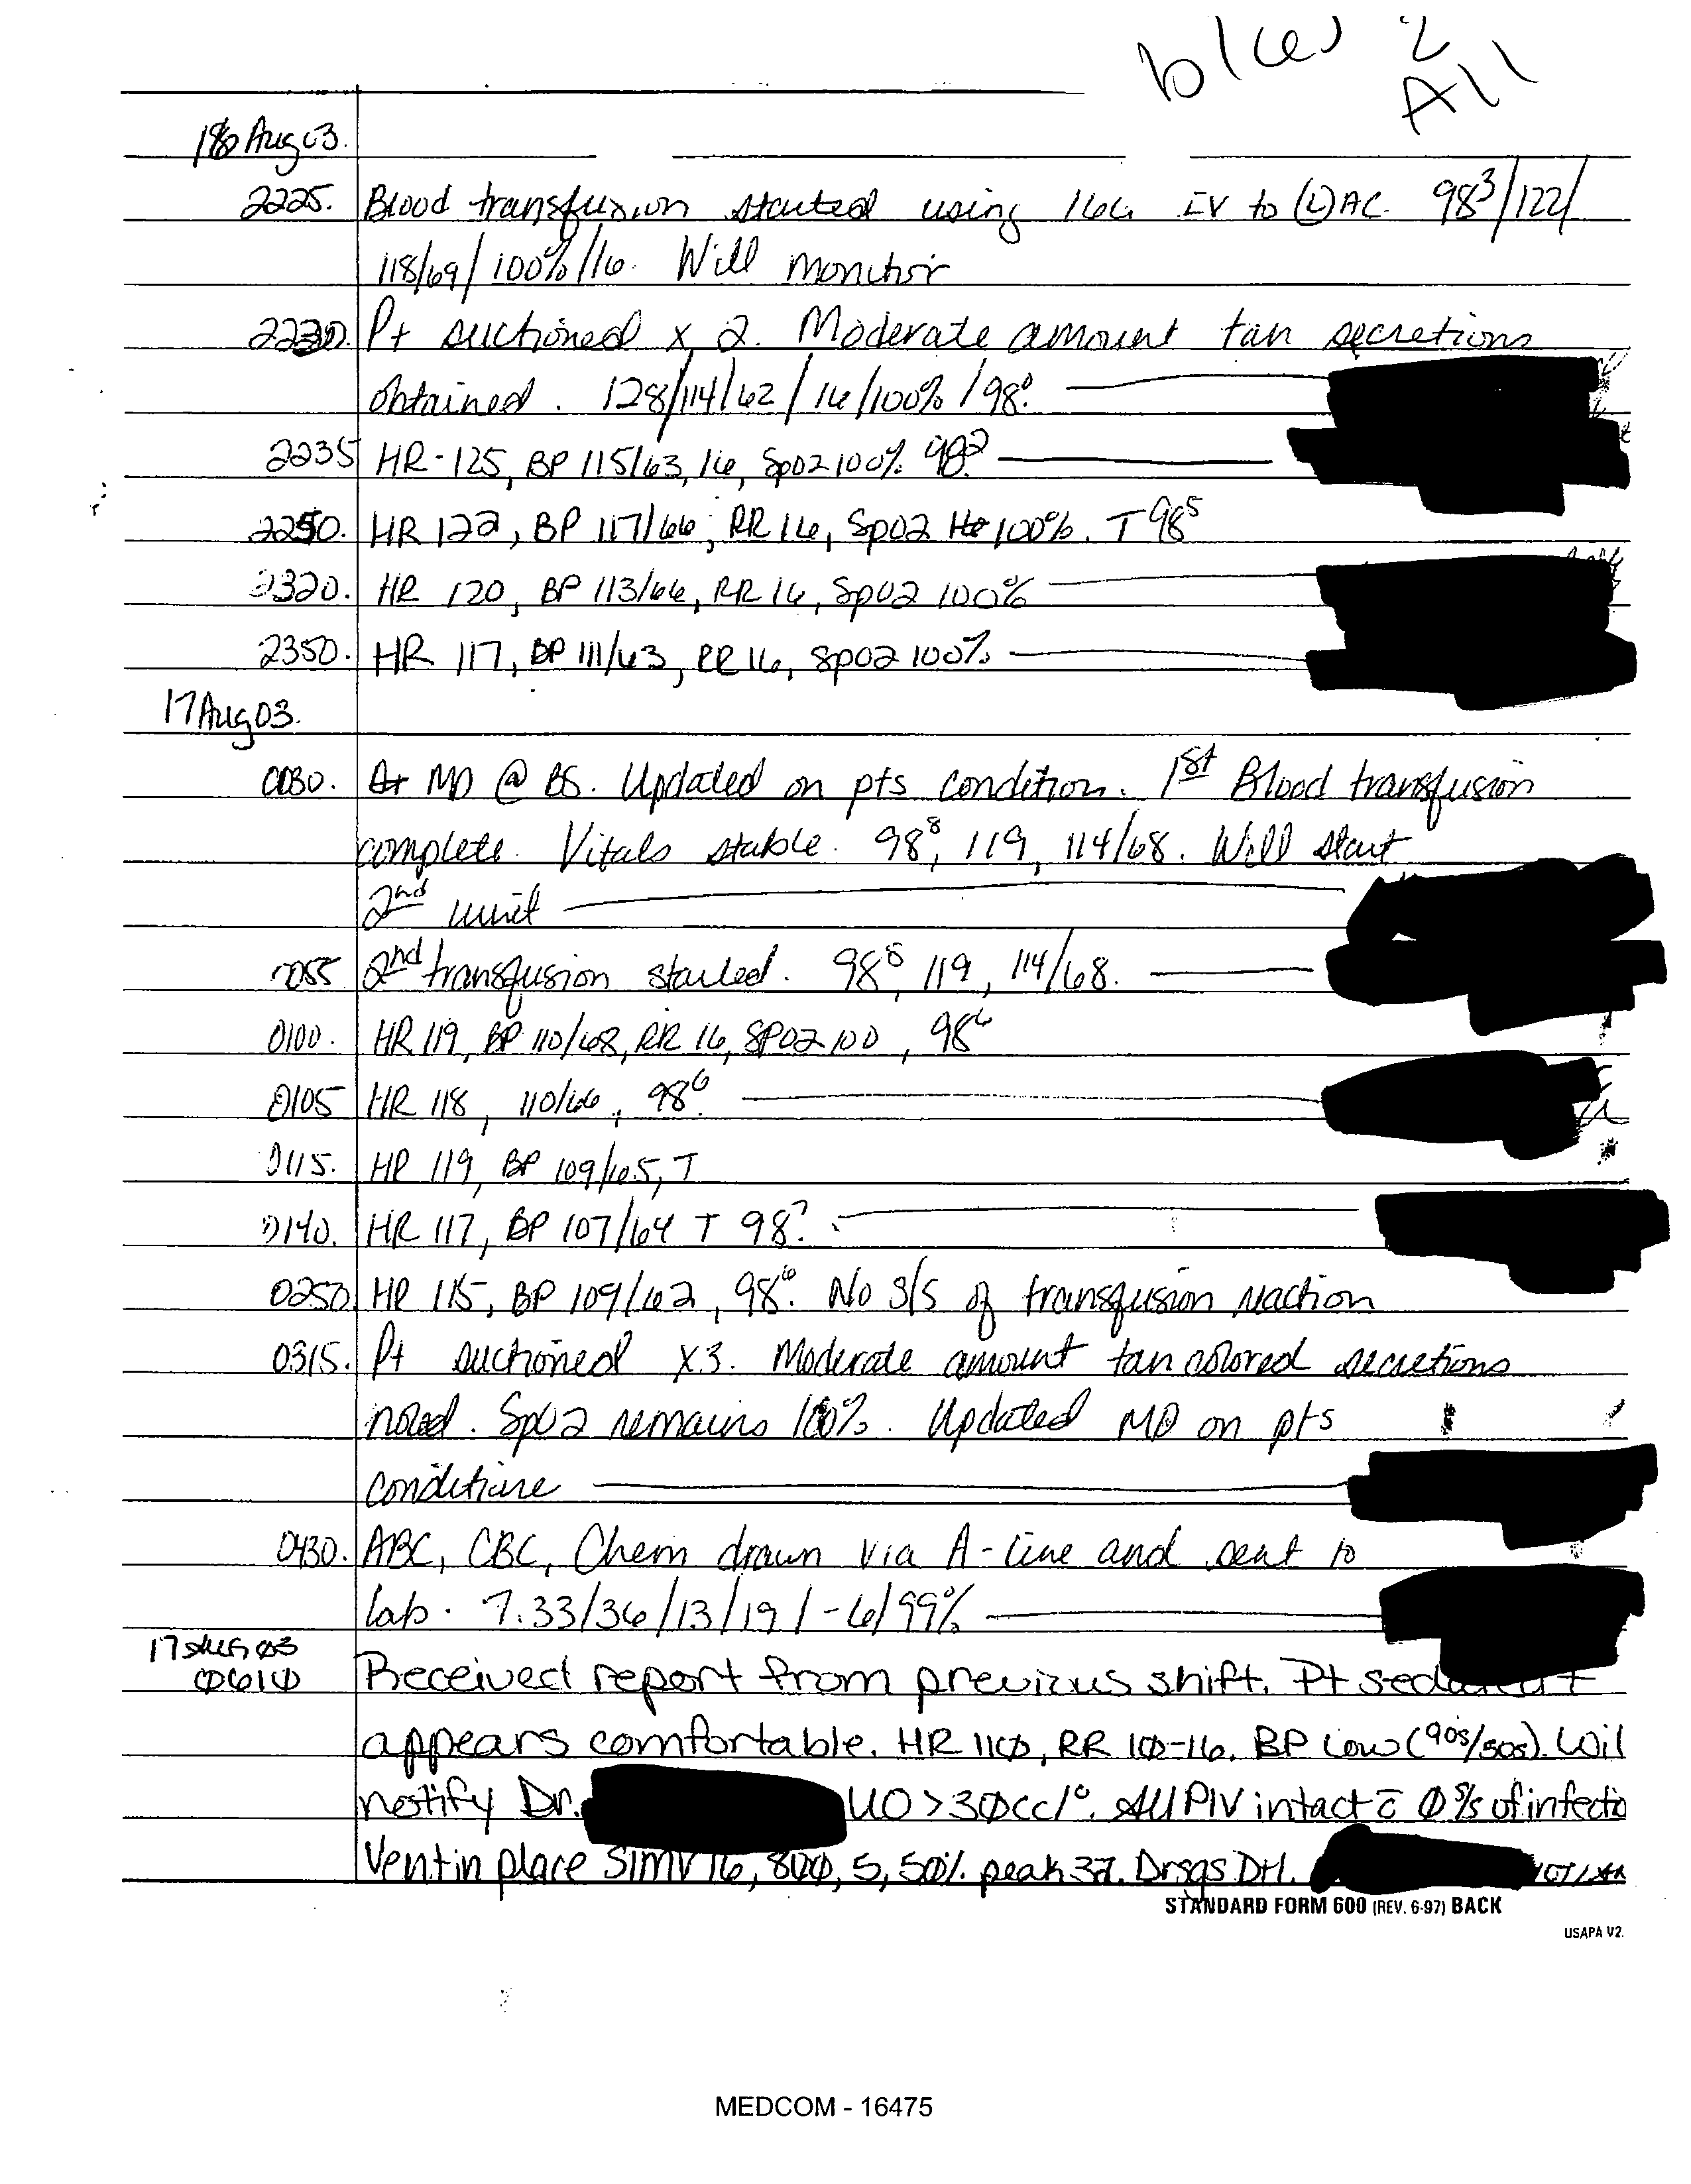 b(6) 2
All
16 Aug 03.
2225. Blood transfusion started using 16G IV to (L) AC. 98³/122/
118/69/100%/16. Will monitor
2230. Pt suctioned x 2. Moderate amount tan secretions
obtained. 128/114/62/16/100%/98⁰.
2235 HR-125, BP 115/63, 16, SpO2 100% 98²
2250. HR 122, BP 117/66, RR 16, SpO2 100%. T 98⁵
2320. HR 120, BP 113/66, RR 16, SpO2 100%
2350. HR 117, BP 111/63, RR 16, SpO2 100%
17 Aug 03.
0030. MD @ BS. Updated on pts condition. 1st Blood transfusion
complete. Vitals stable. 98⁸, 119, 114/68. Will start
2nd unit
0055 2nd transfusion started. 98⁸, 119, 114/68.
0100. HR 119, BP 110/68, RR 16, SPO2 100, 98⁶
0105 HR 118, 110/66, 98⁶.
0115. HR 119, BP 109/65, T
0140. HR 117, BP 107/64 T 98⁷.
0250 HR 115, BP 109/62, 98⁶. No s/s of transfusion reaction
0315. Pt suctioned x3. Moderate amount tan colored secretions
noted. SpO2 remains 100%. Updated MD on pts
0430. ABC, CBC, Chem drawn via A-line and sent to
lab. 7.33/36/13/19/-6/99%
17 AUG 03
0610 Received report from previous shift. Pt
appears comfortable. HR 110, RR 10-16. BP Low (90s/50s). Wil
notify Dr. UO >30cc/°. All PIV intact c̄ Ø s/s of infectio
Vent in place SIMV 16, 800, 5, 50%. peak 37. Drsgs DH.
STANDARD FORM 600 (REV. 6-97) BACK
USAPA V2.
MEDCOM - 16475